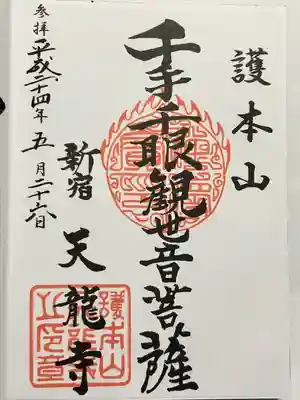 護本山
千手千眼観世音菩薩
新宿 天龍寺
参拝 平成二十四年五月二十六日
護本山